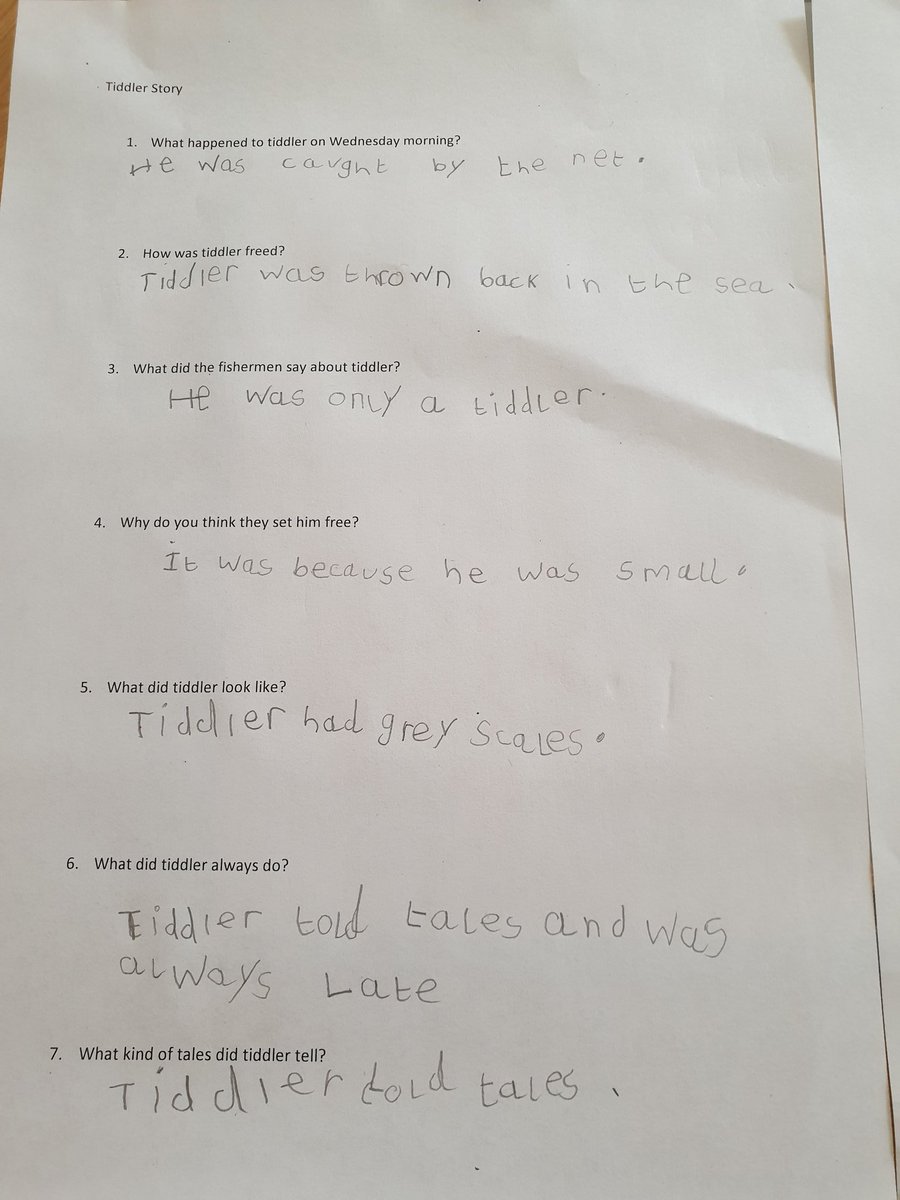 Tiddler Story
1. What happened to tiddler on Wednesday morning?
He was caught by the net.
2. How was tiddler freed?
Tiddler was thrown back in the sea.
3. What did the fishermen say about tiddler?
He was only a tiddler.
4. Why do you think they set him free?
It was because he was small.
5. What did tiddler look like?
Tiddler had grey scales.
6. What did tiddler always do?
Tiddler told tales and was
always Late
7. What kind of tales did tiddler tell?
Tiddler told tales.